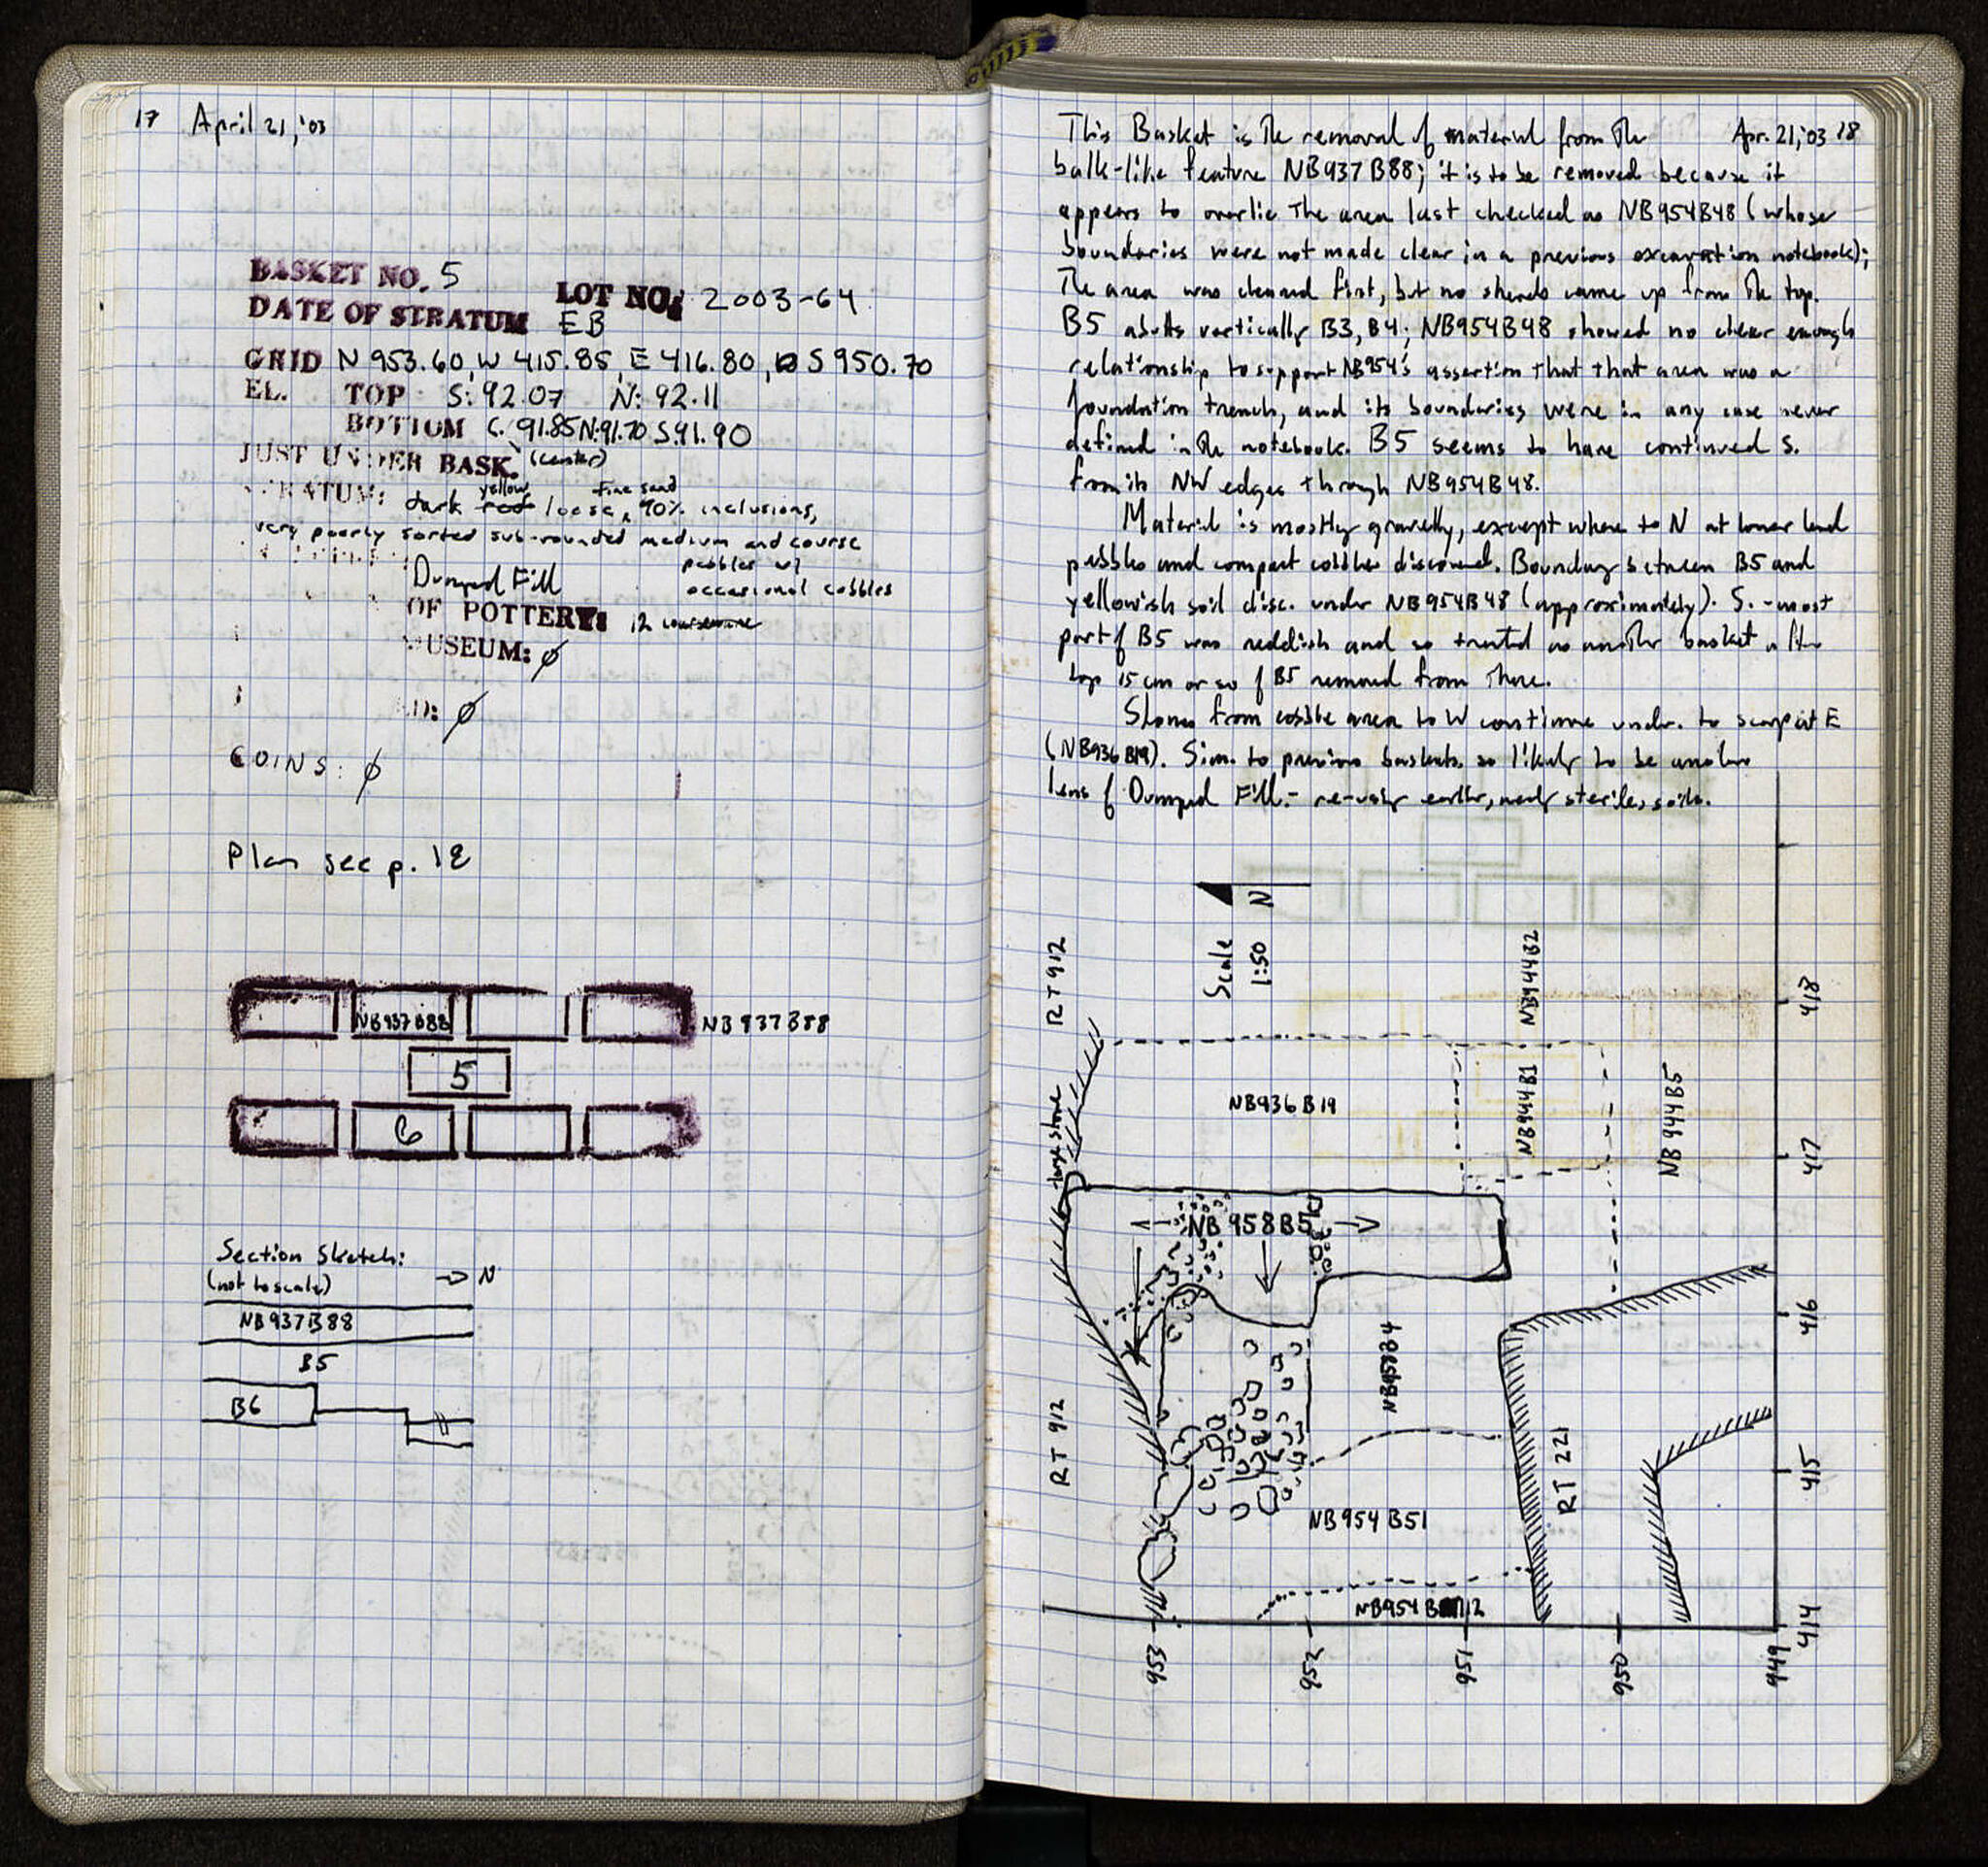 17 April 21, '03
BASKET NO. 5
LOT NO: 2003-64
DATE OF STRATUM EB
GRID N 953.60, W 415.85, E 416.80, S 950.70
EL. TOP S: 92.07 N: 92.11
BOTTOM C. 91.85 N: 91.70 S: 91.90
JUST UNDER BASK. (center)
STRATUM: dark red yellow loose, fine sand 90% inclusions,
very poorly sorted sub-rounded medium and course
pebbles w/
Dumped Fill
occasional cobbles
OF POTTERY: 12 courseware
MUSEUM: ∅
D: ∅
COINS: ∅
Plan see p. 18
NB937B88 NB937B88
5
6
Section Sketch:
(not to scale) → N
NB937B88
B5
B6
This Basket is the removal of material from the Apr. 21, '03 18
balk-like feature NB937B88; it is to be removed because it
appears to overlie the area last checked as NB954B48 (whose
boundaries were not made clear in a previous excavation notebook);
The area was cleaned first, but no sherds came up from the top.
B5 abutts vertically B3, B4; NB954B48 showed no clear enough
relationship to support NB954's assertion that that area was a
foundation trench, and its boundaries were in any case never
defined in the notebook. B5 seems to have continued S.
from its NW edges through NB954B48.
Material is mostly gravelly, except where to N at lower level
pebbles and compact cobbles discovered. Boundary between B5 and
yellowish soil disc. under NB954B48 (approximately). S.-most
part of B5 was reddish and so treated as another basket after
top 15 cm or so of B5 removed from there.
Stones from cobble area to W continue under. to scarp at E
(NB936B19). Sim. to previous baskets. so likely to be another
lens of Dumped Fill - earth, nearly sterile, soils.
N
Scale
1:50
RT 912
NB944B2
418
large stone
NB936B19
NB944B1
NB944B5
417
NB958B5
416
RT 912
RT 221
415
NB954B51
NB954B 12
414
953
952
951
950
949